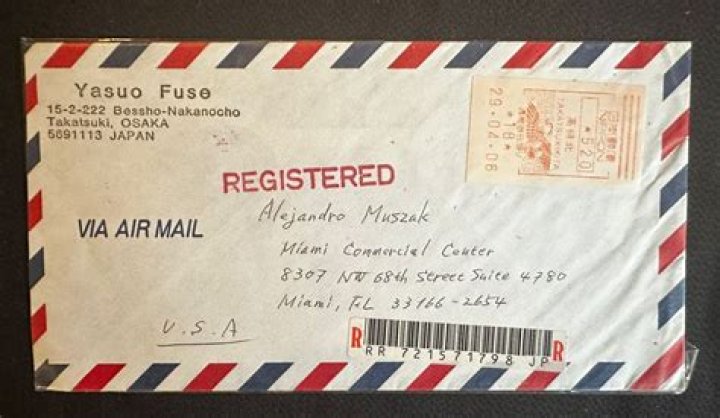 Yasuo Fuse
15-2-222 Bessho-Nakanocho
Takatsuki, OSAKA
5691113 JAPAN
29.04.06
*18*
高槻北
TAKATSUKIKITA
日本郵便
NIPPON
*520
REGISTERED
VIA AIR MAIL
Alejandro Muszak
Miami Commercial Center
8307 NW 68th Street Suite 4780
Miami, FL 33166-2654
U.S.A
R R
RR 721571798 JP